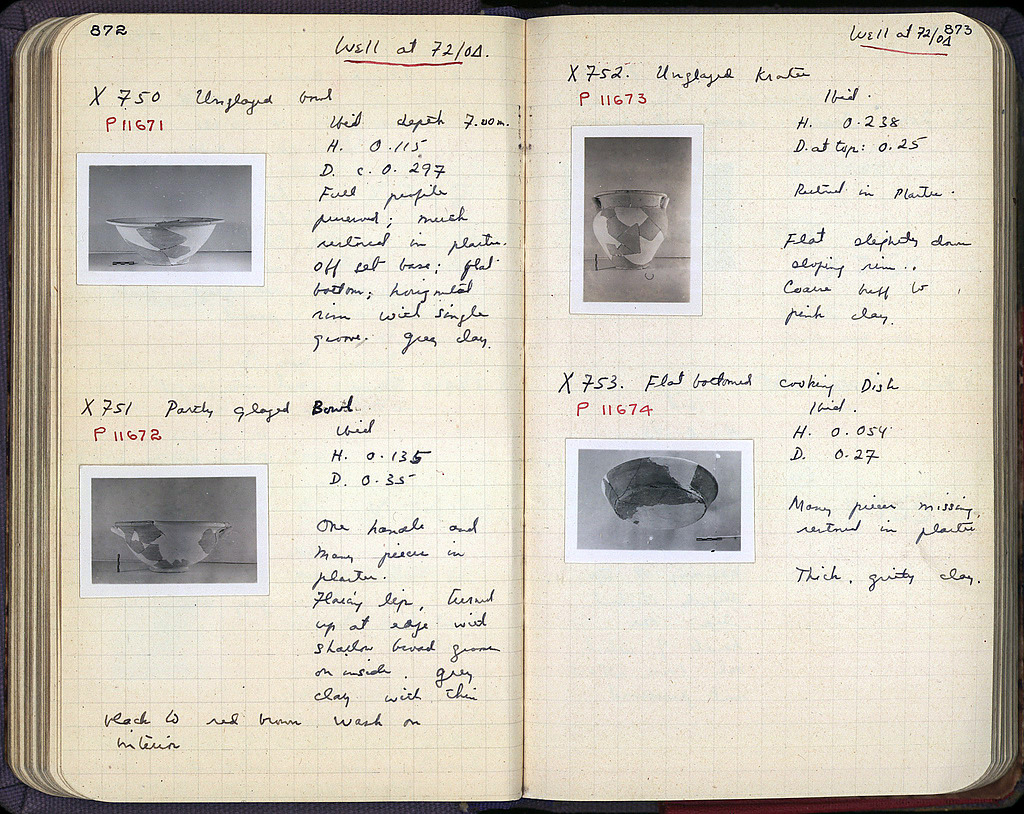 872
Well at 72/ΟΔ.
X 750 Unglazed bowl
P 11671
Ibid depth 7.00m.
H. 0.115
D. c. 0.297
Full profile
preserved; much
restored in plaster.
Off set base; flat
bottom; horizontal
rim with single
groove. Grey clay.
X 751 Partly glazed Bowl.
P 11672
Ibid
H. 0.135
D. 0.35
One handle and
many pieces in
plaster.
Flaring lip, turned
up at edge with
shallow broad groove
on inside. Grey
clay with thin
black to red brown wash on
interior
873
Well at 72/ΟΔ
X 752. Unglazed Krater
P 11673
Ibid.
H. 0.238
D. at top: 0.25
Restored in Plaster.
Flat slightly down
sloping rim..
Coarse buff to
pink clay.
X 753. Flat bottomed cooking Dish
P 11674
Ibid.
H. 0.054
D. 0.27
Many pieces missing,
restored in plaster
Thick, gritty clay.